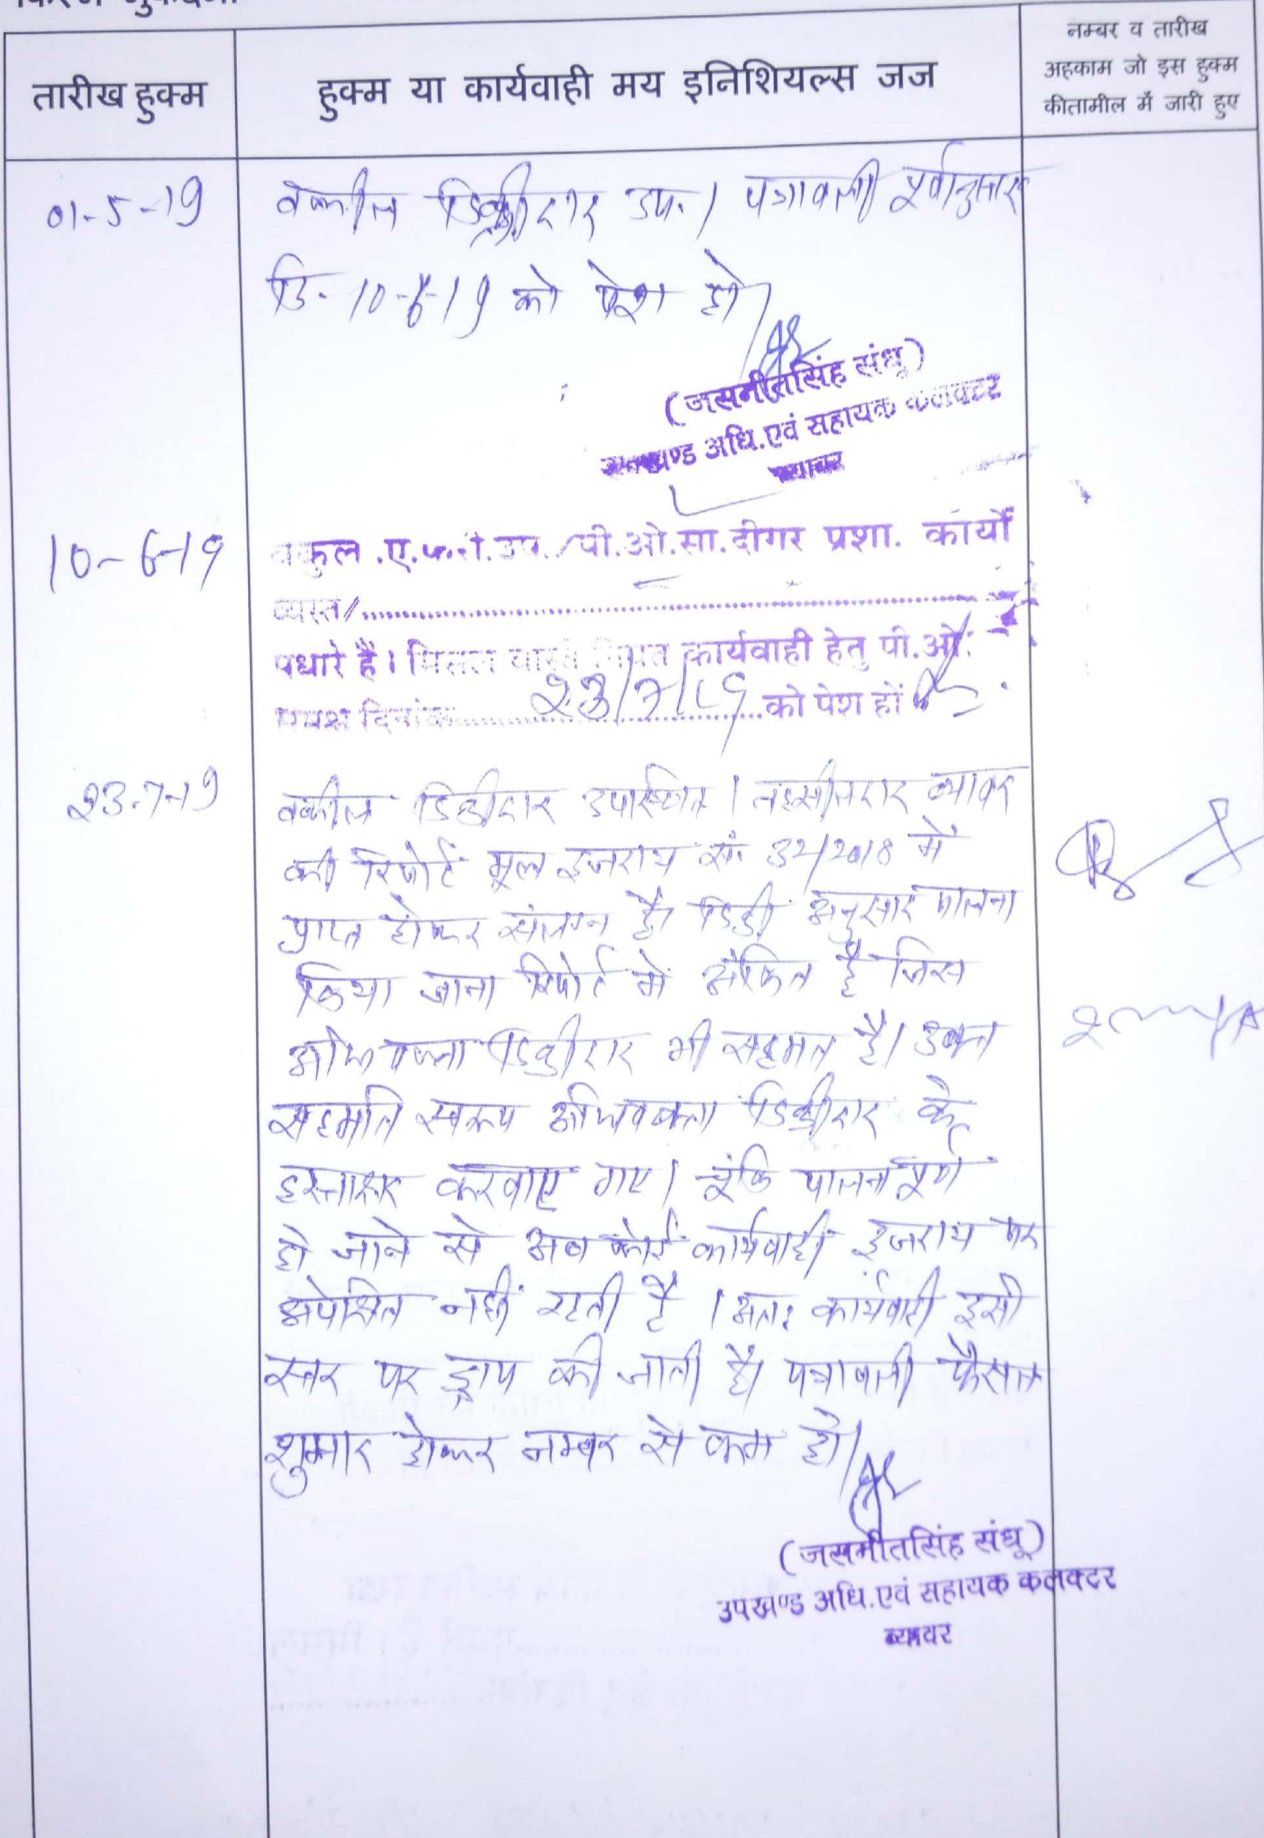 तारीख हुक्म
हुक्म या कार्यवाही मय इनिशियल्स जज
नम्बर व तारीख
अहकाम जो इस हुक्म
कीतामील में जारी हुए
01-5-19
वकील डिक्रीदार उप.। पत्रावली पूर्वानुसार
दि. 10-6-19 को पेश हो।
(जसमीतसिंह संधू)
उपखण्ड अधि.एवं सहायक कलक्टर
ब्यावर
10-6-19
वकुल .ए.फ.ी.उप./पी.ओ.सा.दीगर प्रशा. कार्यो
व्यस्त/
पधारे हैं। मिसल वास्ते नियत कार्यवाही हेतु पी.ओ.
समक्ष दिनांक 23/7/19 को पेश हों
23-7-19
वकील डिक्रीदार उपस्थित। तहसीलदार ब्यावर
की रिपोर्ट मूल इजराय सं. 32/2018 में
प्राप्त होकर संलग्न है। डिक्री अनुसार पालना
किया जाना रिपोर्ट में अंकित है जिस
अधिवक्ता डिक्रीदार भी सहमत है। उक्त
सहमति स्वरूप अधिवक्ता डिक्रीदार के
हस्ताक्षर करवाए गए। चूंकि पालना पूर्ण
हो जाने से अब कोई कार्यवाही इजराय पर
अपेक्षित नहीं रहती है । अतः कार्यवाही इसी
स्तर पर ड्राप की जाती है। पत्रावली फैसल
शुमार होकर नम्बर से कम हो।
(जसमीतसिंह संधू)
उपखण्ड अधि.एवं सहायक कलक्टर
ब्यावर